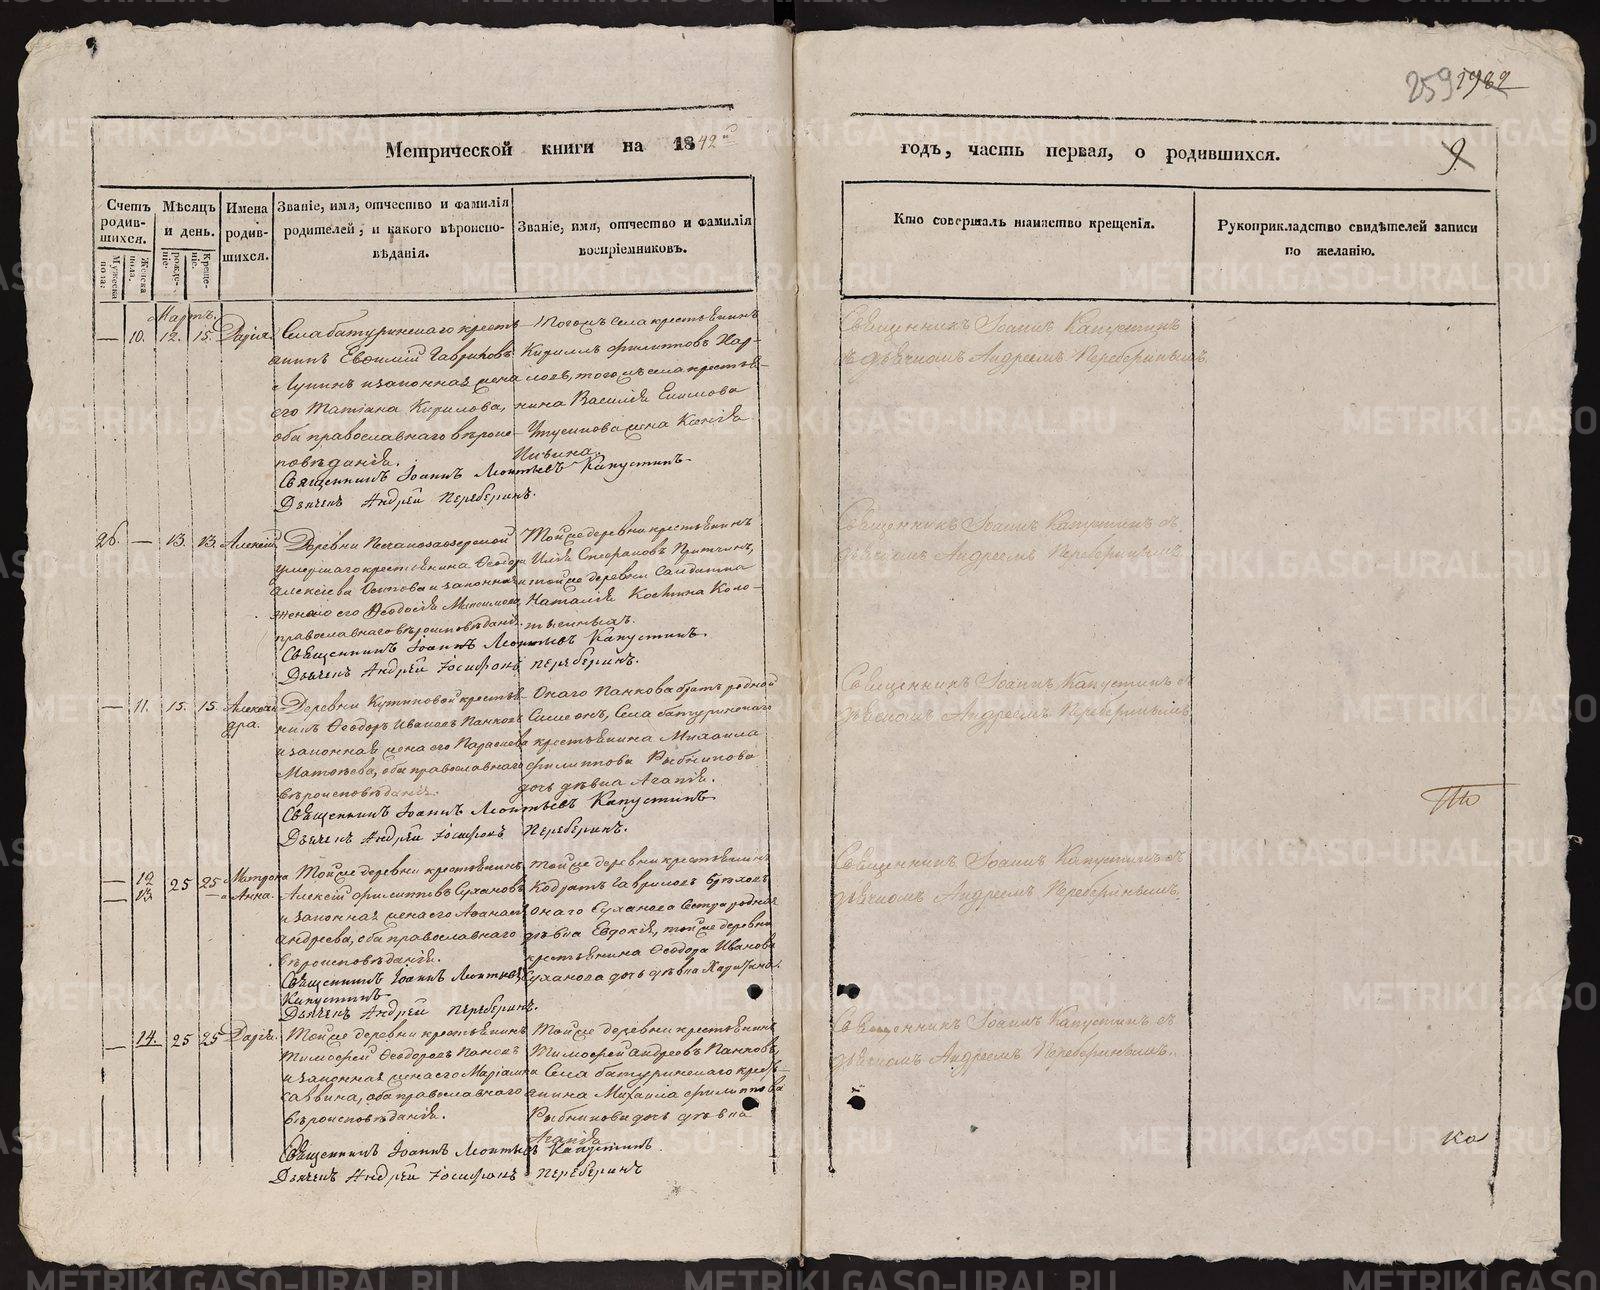 259 1982
Метрической книги на 1842й
годъ, часть первая, о родившихся.
9.
Счетъ родившихся.
Мужеска пола.
Женска пола.
Мѣсяцъ и день.
рожденіе.
крещеніе.
Имена родившихся.
Званіе, имя, отчество и фамилія
родителей, и какого вѣроиспо-
вѣданія.
Званіе, имя, отчество и фамилія
воспріемниковъ.
Кто совершалъ таинство крещенія.
Рукоприкладство свидѣтелей записи
по желанію.
Мартъ.
— 10. 12. 15. Дарія.
Села батуринскаго кресть-
анинъ Евѳимій Гавриловъ
и законная жена
его Татіана Кирилова,
оба православнаго вѣроис-
повѣданія.
Тогожъ села крестьянинъ
Кириллъ Филипповъ Хар-
ловъ, того жъ села крестья-
нина Василія Екимова
жена Ксенія
Священникъ Іоаннъ Леонтьевъ Капустинъ
Дьячекъ Андрей Переберинъ.
Священникъ Іоаннъ Капустинъ
съ дьячкомъ Андреемъ Переберинымъ
26. — 13. 13. Алексій
Деревни Песчанозаозерской
умершаго крестьянина Ѳеодора
Алексіева Осипова и законная
жена его Ѳеодосія
православнаго вѣроисповѣданія.
Тойже деревни крестьянинъ
Илія Стефановъ
и тойже деревни Солдатка
Наталія Костина
Священникъ Іоаннъ Леонтьевъ Капустинъ.
Дьячекъ Андрей Іосифовъ Переберинъ.
Священникъ Іоаннъ Капустинъ съ
дьячкомъ Андреемъ Переберинымъ.
— 11. 15. 15. Алексан
дра.
Деревни крестья-
нинъ Ѳеодоръ Ивановъ Панковъ
и законная жена его Параскева
Матѳѣева, оба православнаго
вѣроисповѣданія.
Онаго Панкова братъ родной
Симеонъ, Села батуринскаго
крестьянина Михаила
Филиппова Рыбникова
дочь дѣвка Агапія.
Священникъ Іоаннъ Леонтьевъ Капустинъ
Дьячекъ Андрей Іосифовъ Переберинъ.
Священникъ Іоаннъ Капустинъ съ
дьячкомъ Андреемъ Переберинымъ
— 12 25 25 Матрона
— 13. и Анна.
Тойже деревни крестьянинъ
Алексій Филипповъ Сухановъ
и законная жена его
Андреева, оба православнаго
вѣроисповѣданія.
Тойже деревни крестьянинъ
Кодратъ Гавриловъ
онаго Суханова сестра родная
дѣвка Евдокія, тойже деревни
крестьянина Ѳеодора Иванова
Суханова дочь дѣвка
Священникъ Іоаннъ Леонтьевъ
Капустинъ
Дьячекъ Андрей Переберинъ.
Священникъ Іоаннъ Капустинъ съ
дьячкомъ Андреемъ Переберинымъ.
— 14. 25 25 Дарія.
Тойже деревни крестьянинъ
Тимофей Ѳеодоровъ Панковъ
и законная жена его Маріамна
Саввина, оба православнаго
вѣроисповѣданія.
Тойже деревни крестьянинъ
Тимофей Андреевъ Панковъ,
Села батуринскаго кресть-
янина Михаила Филиппова
Рыбникова дочь дѣвка
Агапія
Священникъ Іоаннъ Леонтьевъ Капустинъ.
Дьячекъ Андрей Іосифовъ Переберинъ
Священникъ Іоаннъ Капустинъ съ
дьячкомъ Андреемъ Переберинымъ.
METRIKI.GASO-URAL.RU